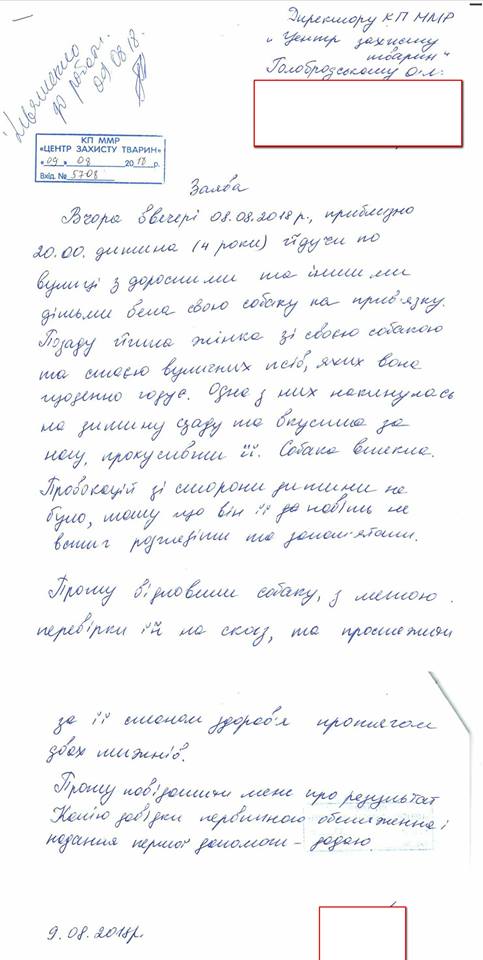 Директору КП ММР
"Центр захисту
тварин"
Голобродському О.Л.
до роботи
09.08.18.
КП ММР
«ЦЕНТР ЗАХИСТУ ТВАРИН»
«09» 08 2018 р.
Вхід. № 5708
Заява
Вчора ввечері 08.08.2018 р., приблизно
20.00. дитина (4 роки) йдучи по
вулиці з дорослими та іншими
дітьми вела свою собаку на прив'язку.
Позаду йшла жінка зі своєю собакою
та стаєю вуличних псів, яких вона
щоденно годує. Одна з них накинулась
на дитину сзаду та вкусила за
ногу, прокусивши її. Собака втекла.
Провокацій зі сторони дитини не
було, тому що він її да навіть не
встиг розгледіти та запам'ятати.
Прошу відловити собаку, з метою
перевірки її на сказ, та простежити
за її станом здоров'я протягом
двох тижнів.
Прошу повідомити мене про результат
Копію довідки первичного обстеження і
надання першої допомоги - додаю.
9.08.2018р.